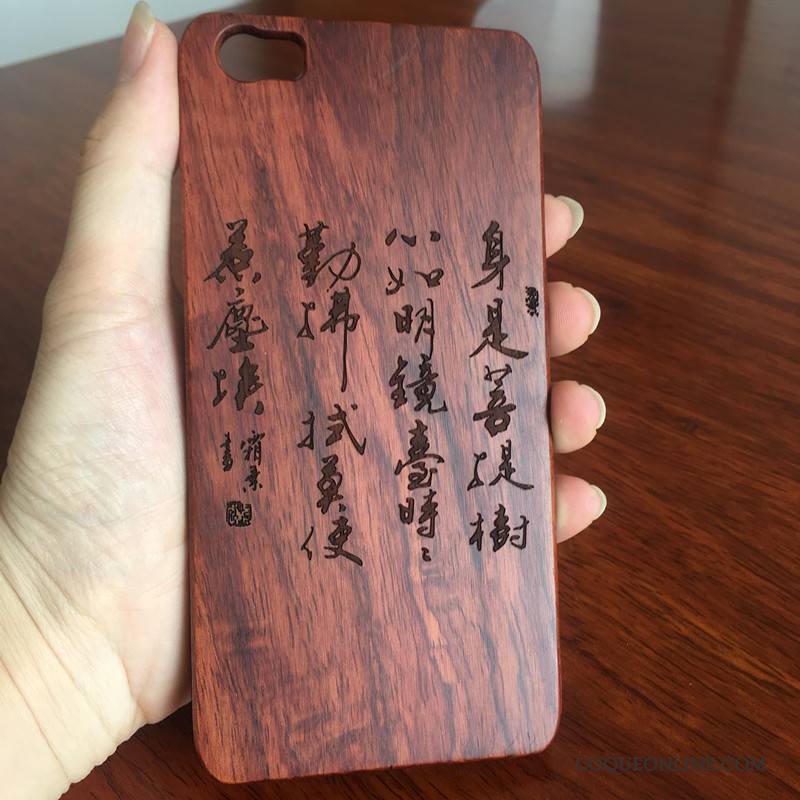 身是菩提樹
心如明鏡臺時〻
勤拂拭莫使
惹塵埃
書
COQUEONLINE.COM